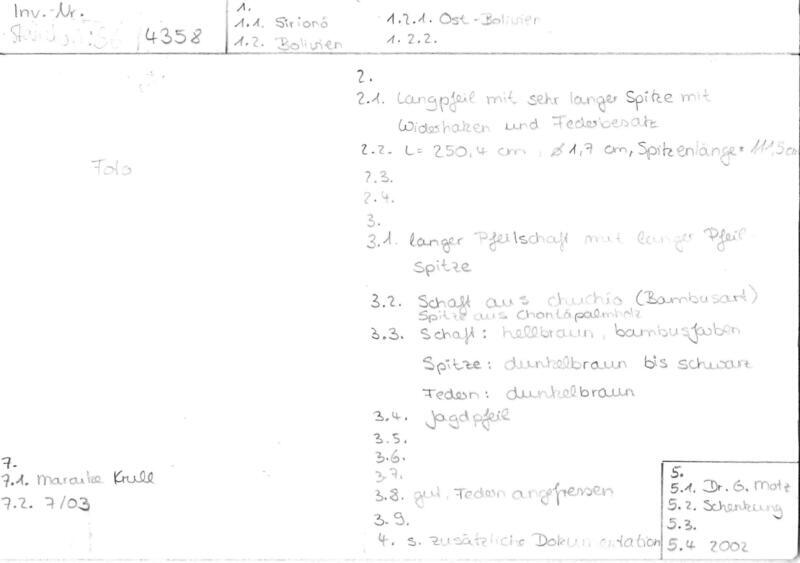 Inv.-Nr.
4358
1.
1.1. Sirionó
1.2. Bolivien
1.2.1. Ost-Bolivien
1.2.2.
Foto
2.
2.1. Langpfeil mit sehr langer Spitze mit
Widerhaken und Federbesatz
2.2. L= 250,4 cm, ø 1,7 cm, Spitzenlänge= 111,5cm
2.3.
2.4.
3.
3.1. langer Pfeilschaft mit langer Pfeil-
Spitze
3.2. Schaft aus chuchio (Bambusart)
Spitze aus Chontapalmholz
3.3. Schaft: hellbraun, bambusfarben
Spitze: dunkelbraun bis schwarz
Federn: dunkelbraun
3.4. Jagdpfeil
3.5.
3.6.
3.7.
3.8. gut, Federn angefressen
3.9.
4. s. zusätzliche Dokumentation
5.
5.1. Dr. G. Motz
5.2. Schenkung
5.3.
5.4 2002
7.
7.1. Maraike Krull
7.2. 7/03